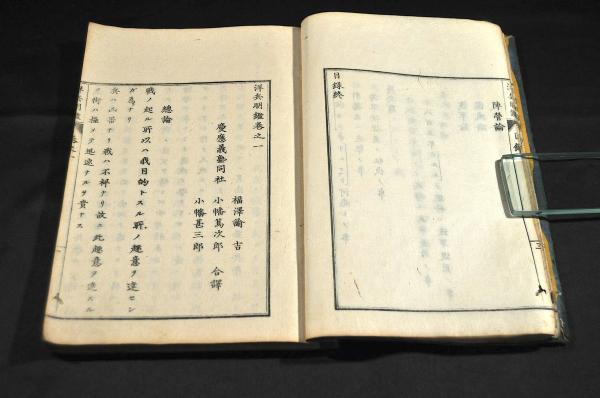 陣營論
目録終
洋兵明鑑卷之一
慶應義塾同社
福澤諭吉
小幡篤次郎 合譯
小幡甚三郎
總論
戰ノ起ル所以ハ我目的トスル所ノ趣意ヲ達セン
ガ爲ナリ
兵ハ凶器ナリ戰ハ不祥ナリ故ニ此趣意ヲ達スル
ノ術ハ極メテ迅速ナルヲ貴ナス